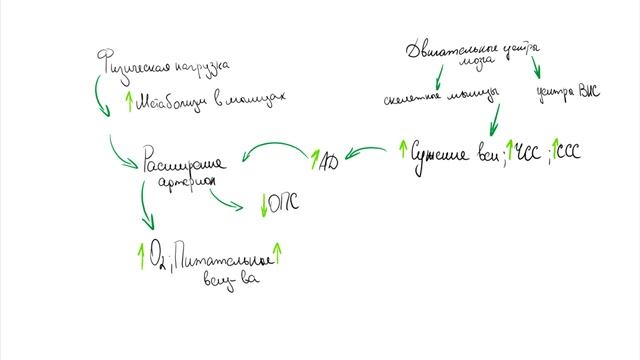 Физическая нагрузка
↑ Метаболизм в мышцах
Расширение
артериол
↑ O₂; Питательное ↑
вещ-ва
↓ ОПС
↑ АД
Двигательные центры
мозга
скелетные мышцы
центра ВНС
↑ Сужение вен; ↑ ЧСС ; ↑ ССС